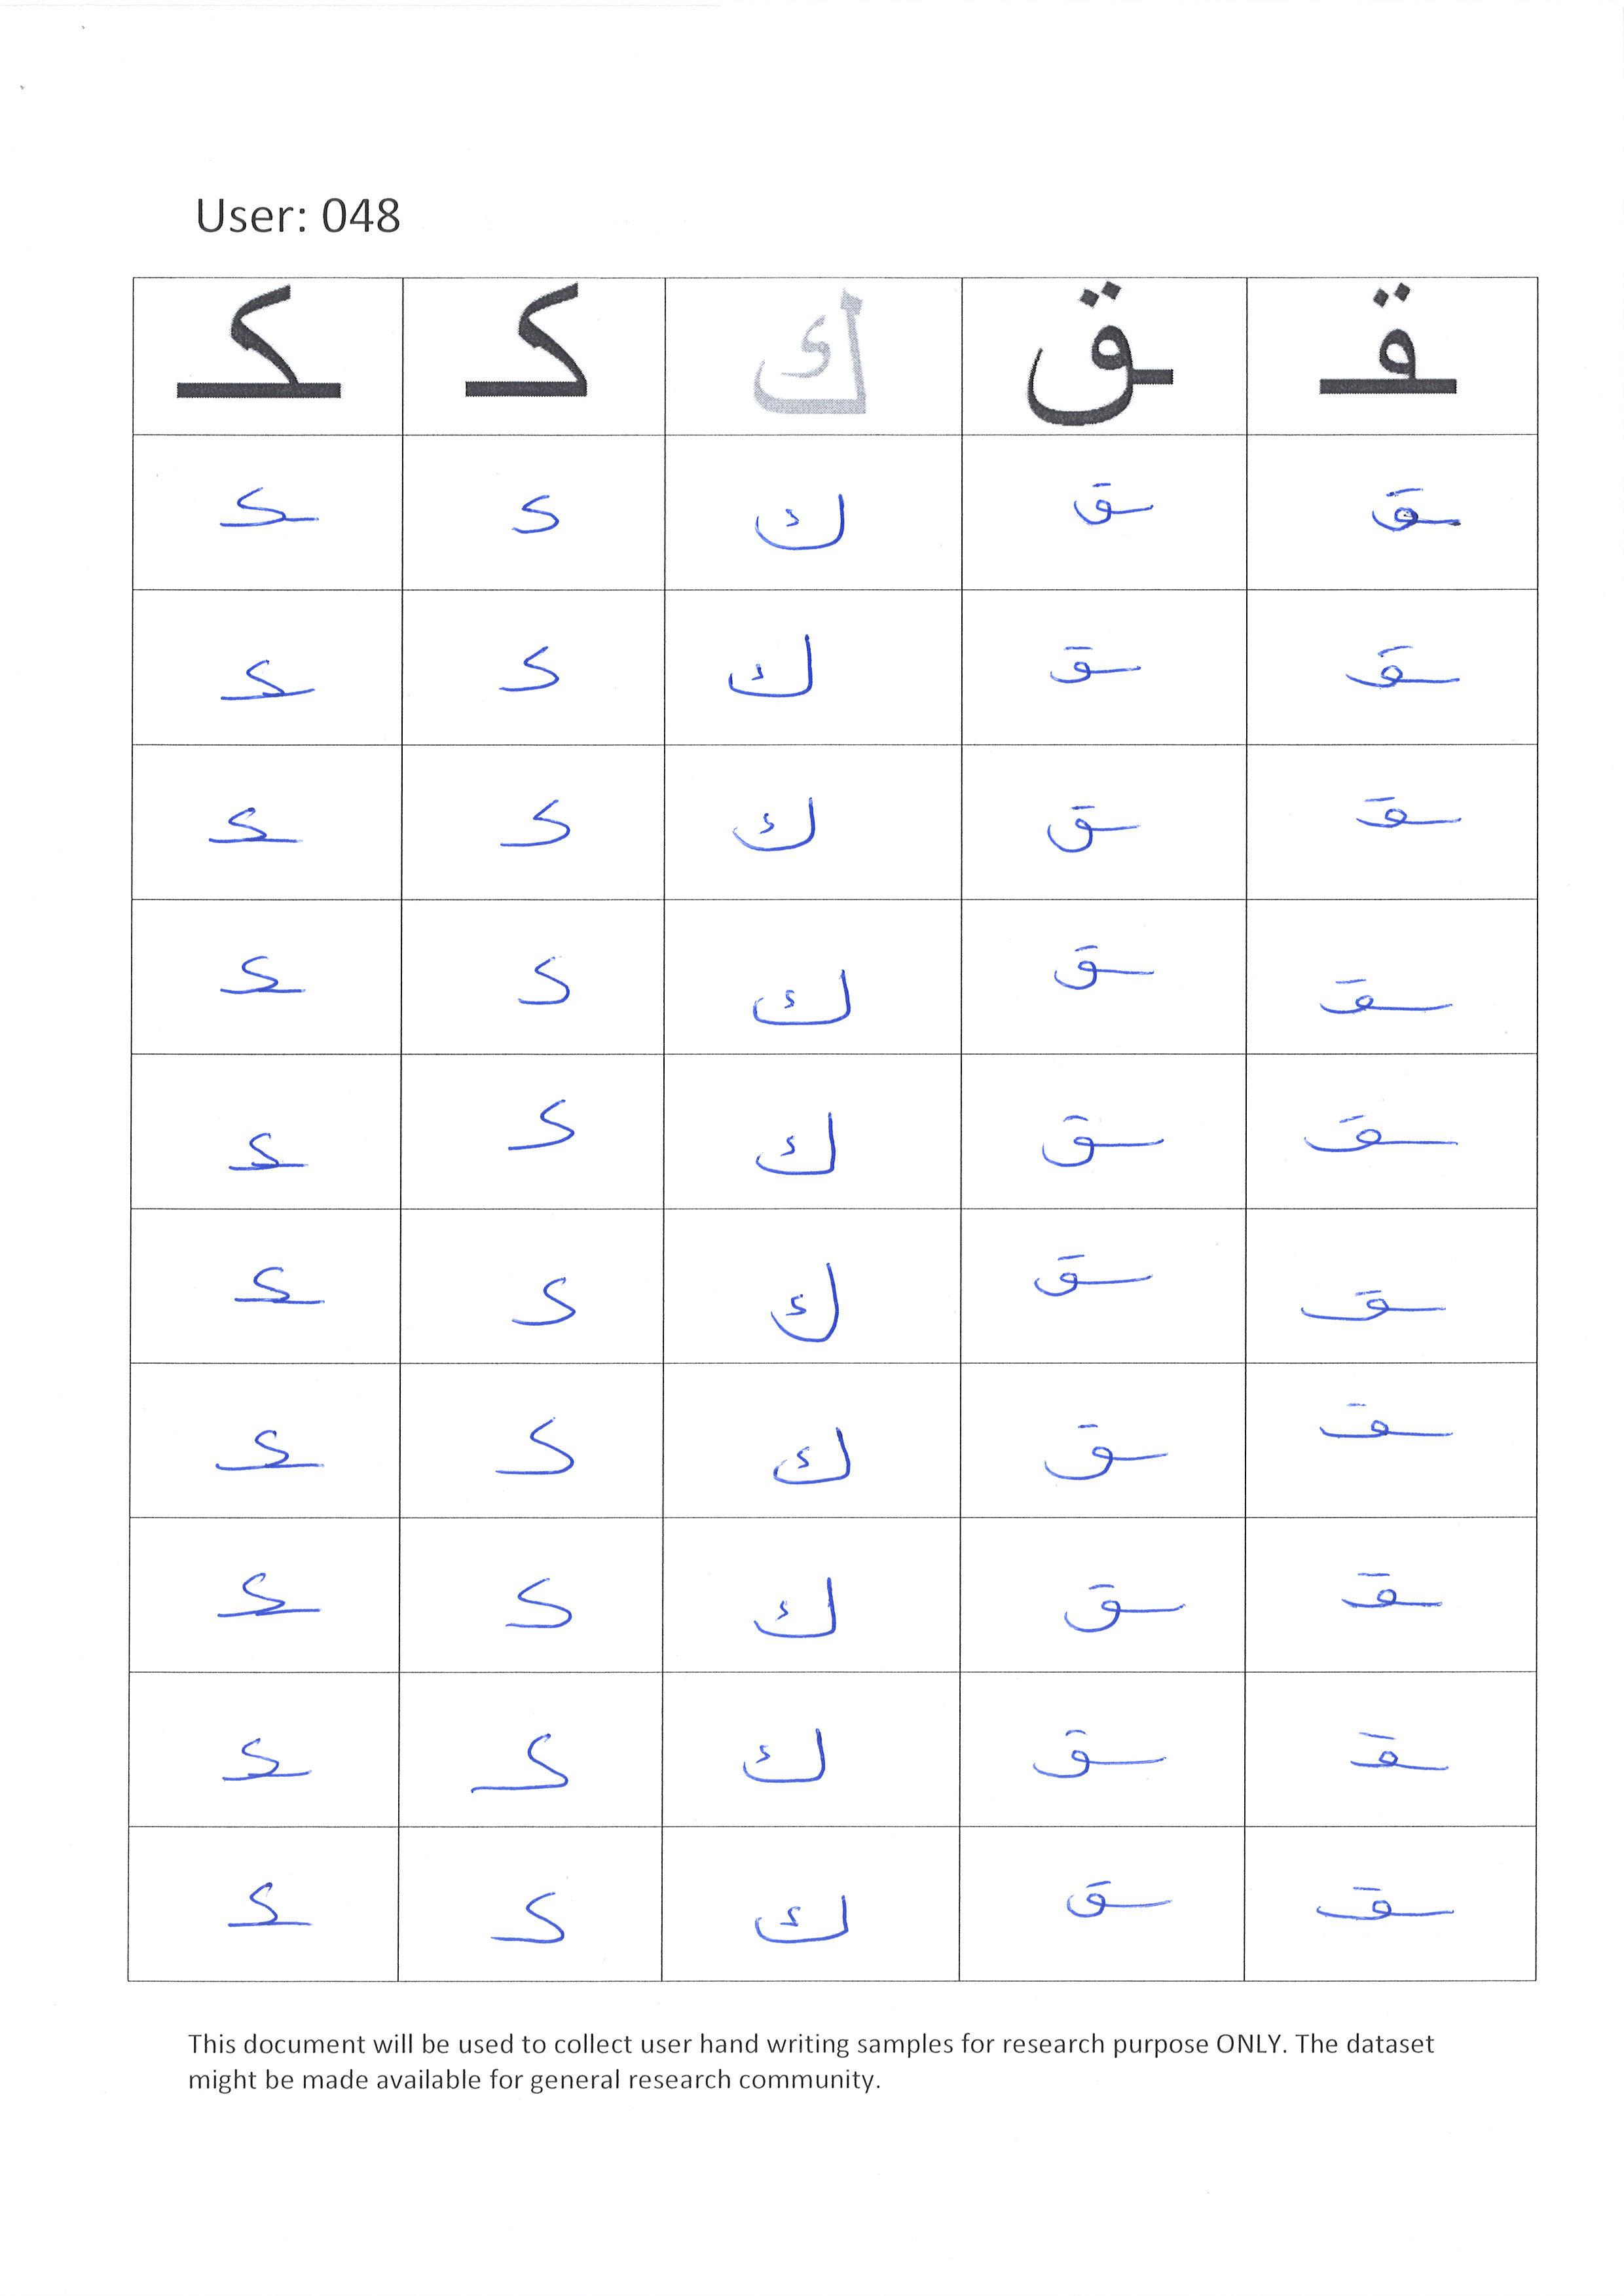 User: 048
ـكـ كـ ك ـق ـقـ
ـكـ كـ ك ـق ـقـ
ـكـ كـ ك ـق ـقـ
ـكـ كـ ك ـق ـقـ
ـكـ كـ ك ـق ـقـ
ـكـ كـ ك ـق ـقـ
ـكـ كـ ك ـق ـقـ
ـكـ كـ ك ـق ـقـ
ـكـ كـ ك ـق ـقـ
ـكـ كـ ك ـق ـقـ
ـكـ كـ ك ـق ـقـ
This document will be used to collect user hand writing samples for research purpose ONLY. The dataset
might be made available for general research community.